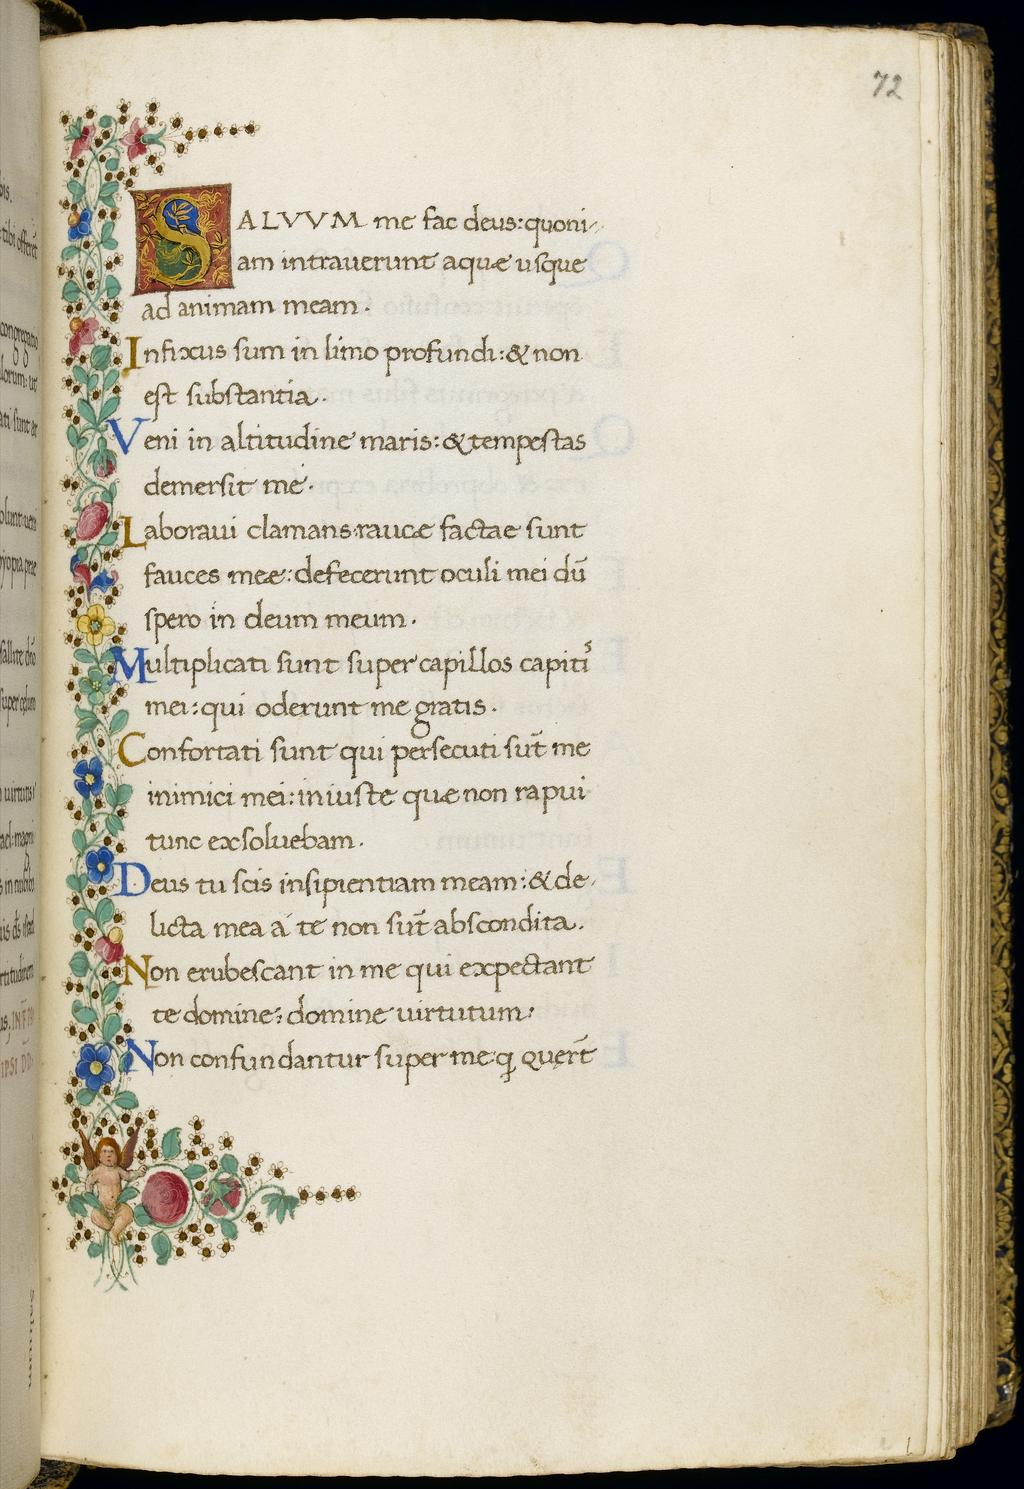 72
SALVVM me fac deus: quoni-
am intrauerunt aquæ usque
ad animam meam.
Infixus sum in limo profundi: & non
est substantia.
Veni in altitudine maris: & tempestas
demersit me.
Laboraui clamans raucæ factae sunt
fauces meæ: defecerunt oculi mei dū
spero in deum meum.
Multiplicati sunt super capillos capitꝭ
mei: qui oderunt me gratis.
Confortati sunt qui persecuti sūt me
inimici mei: iniuste quæ non rapui
tunc exsoluebam.
Deus tu scis insipientiam meam: & de-
licta mea á te non sūt abscondita.
Non erubescant in me qui expectant
te domine: domine uirtutum.
Non confundantur super me q̨ quęrēt